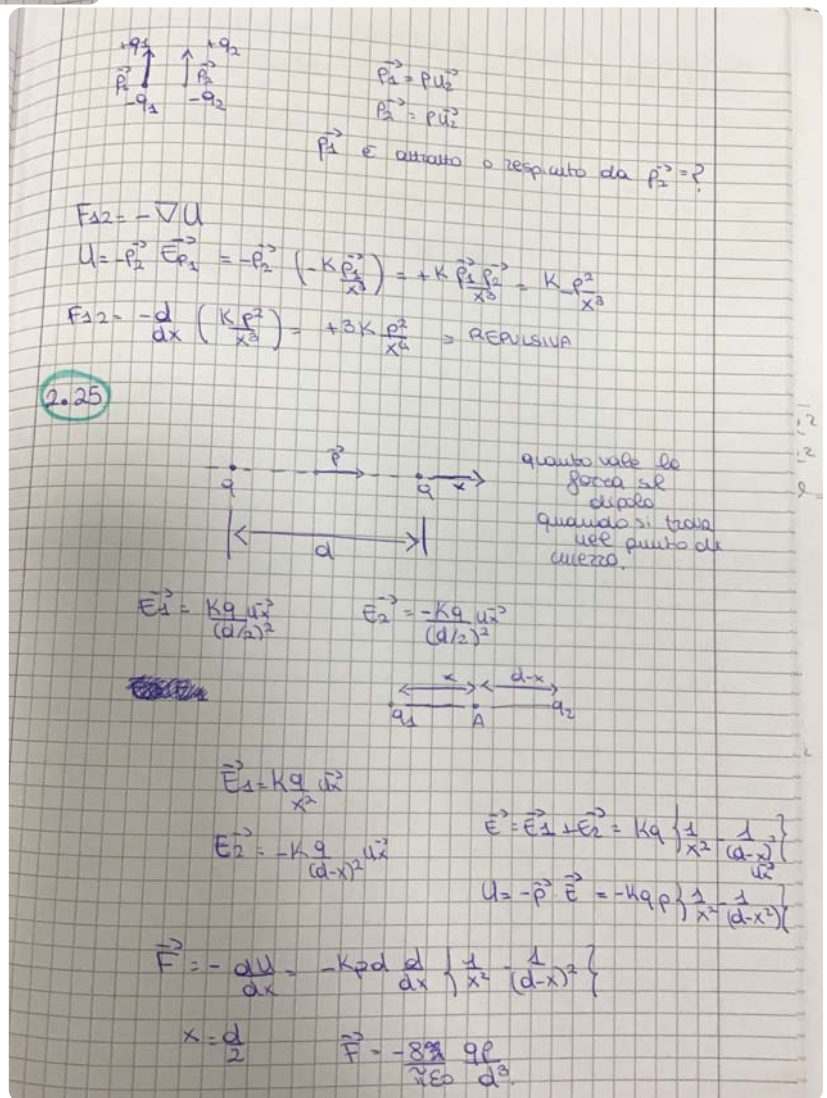 +q₁ +q₂
p₁→ p₂→
-q₁ -q₂
p₁→ = p u₂→
p₂→ = p u₂→
p₁→ è attratto o respinto da p₂→ = ?
F₁₂ = -∇U
U = -p₂→ E→p₁ = -p₂→ (-K p₁→/x³) = +K p₁→ p₂→/x³ = K p²/x³
F₁₂ = -d/dx (K p²/x³) = +3K p²/x⁴ = REPULSIVA
2.25
p→
q q x
d
quanto vale la
forza sul
dipolo
quando si trova
nel punto di
mezzo.
E₁→ = Kq/(d/2)² uₓ→ E₂→ = -Kq/(d/2)² uₓ→
x d-x
q₁ A q₂
E₁→ = K q/x² uₓ→
E₂→ = -K q/(d-x)² uₓ→
E→ = E₁→ + E₂→ = Kq {1/x² - 1/(d-x)²} uₓ→
U = -p→ · E→ = -Kqp {1/x² - 1/(d-x²)}
F→ = -dU/dx = -Kpd d/dx {1/x² - 1/(d-x)²}
x = d/2 F→ = -8/πε₀ qp/d³.